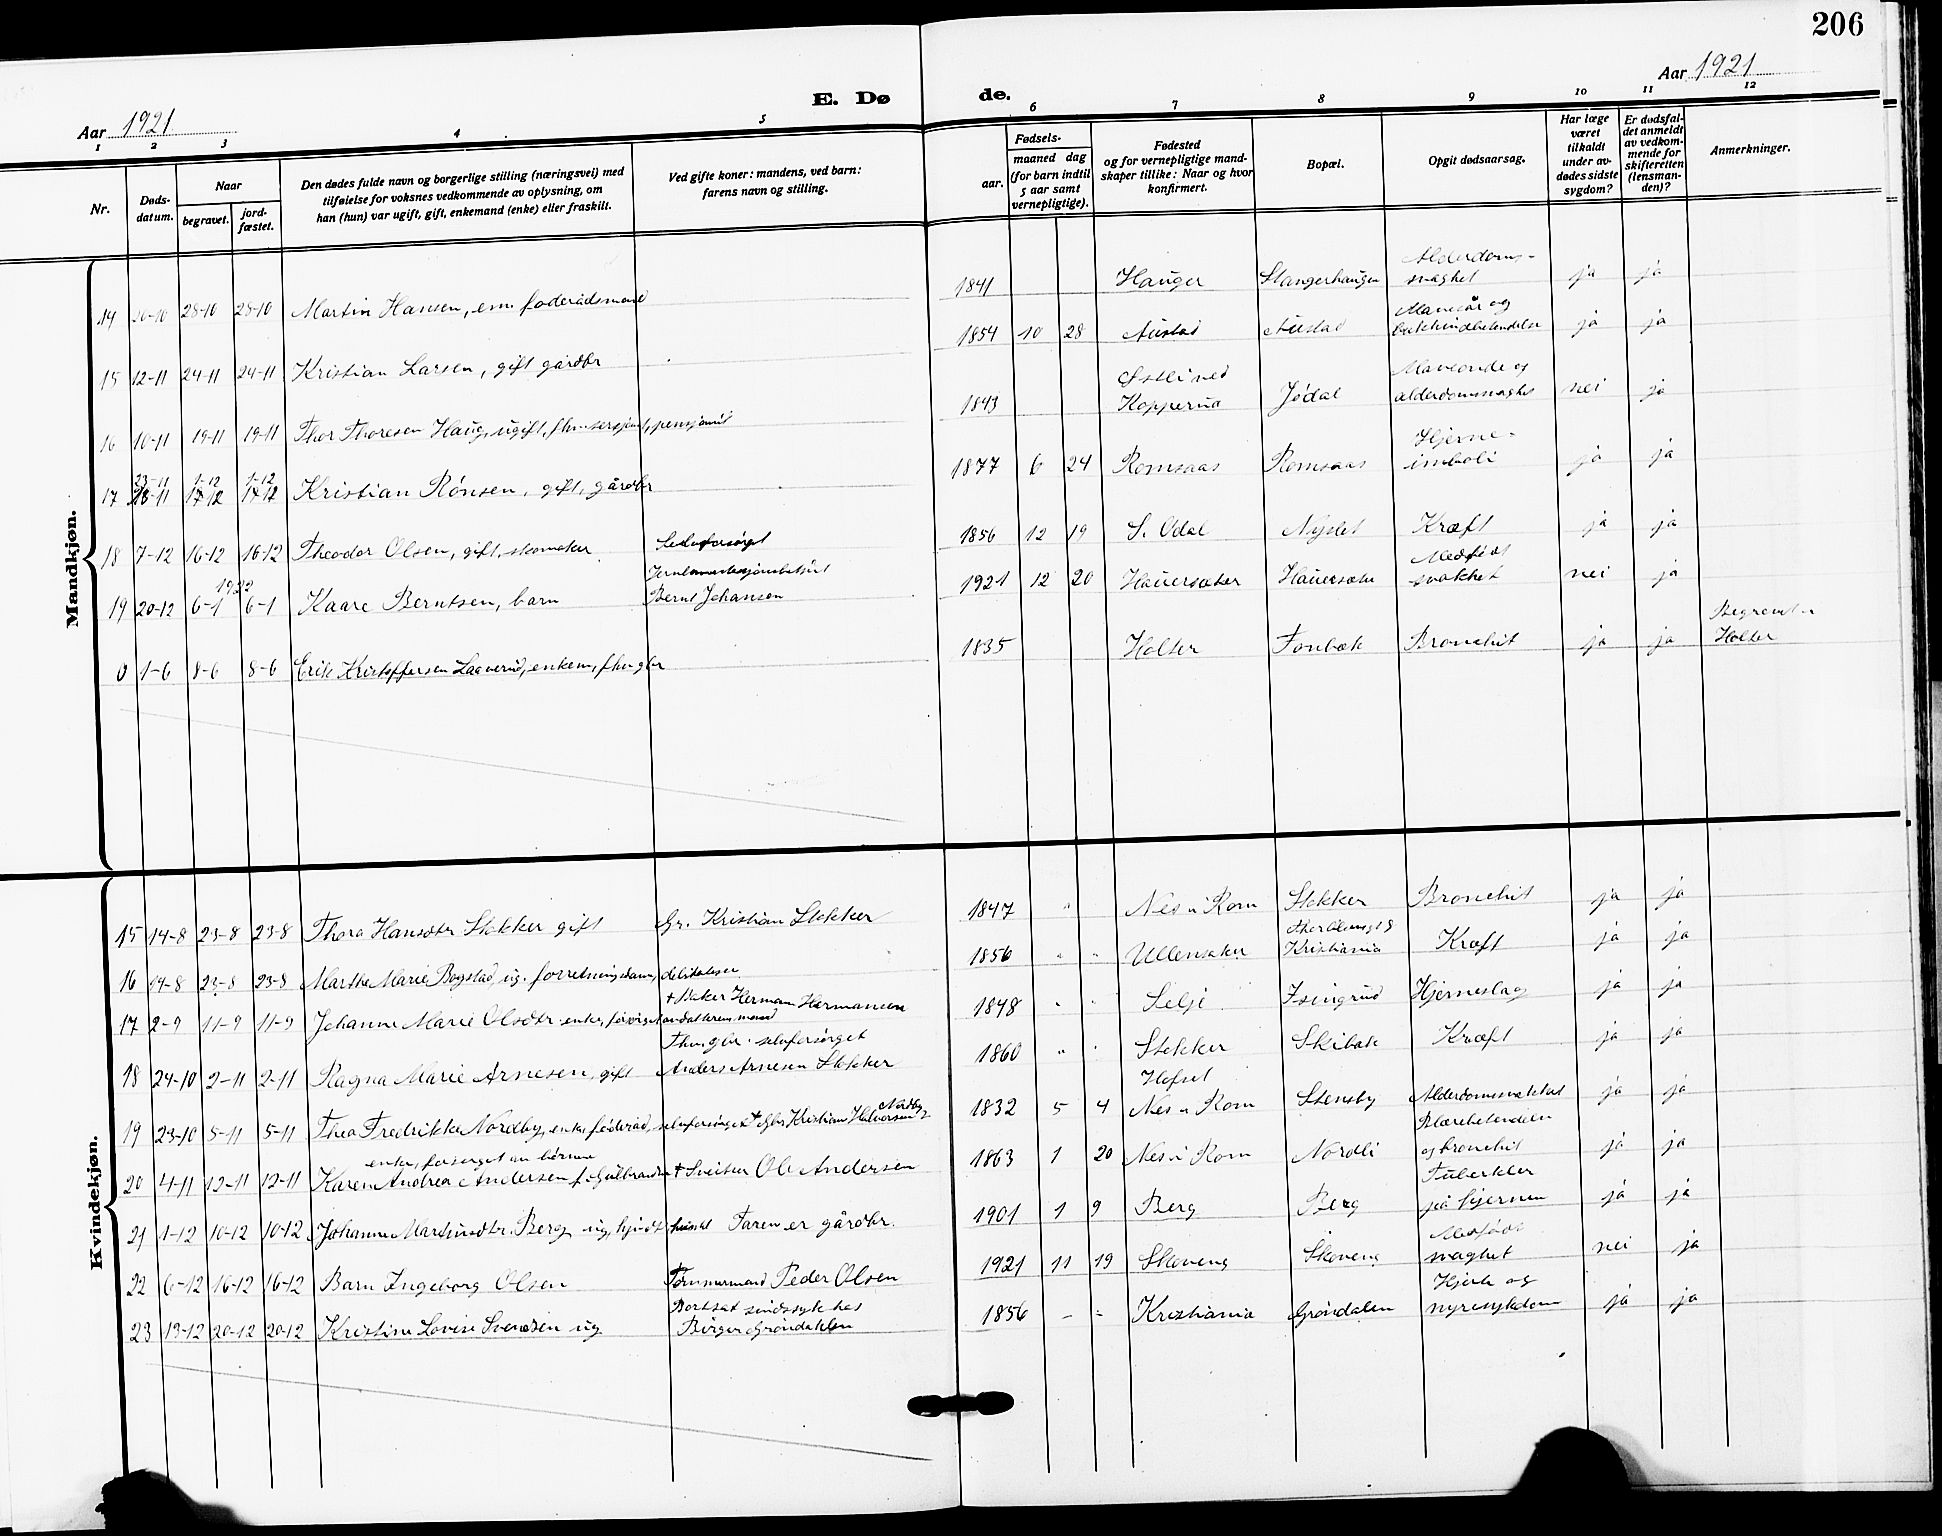 206
Aar 1921
Aar 1921
E. Dø de.
1 2 3 4 5 6 7 8 9 10 11 12
Nr.
Døds-
datum.
Naar
begravet.
jord-
fæstet.
Den dødes fulde navn og borgerlige stilling (næringsvei) med
tilføielse for voksnes vedkommende av oplysning, om
han (hun) var ugift, gift, enkemand (enke) eller fraskilt.
Ved gifte koner: mandens, ved barn:
farens navn og stilling.
Fødsels-
aar.
maaned dag
(for barn indtil
5 aar samt
vernepligtige).
Fødested
og for vernepligtige mand-
skaper tillike: Naar og hvor
konfirmert.
Bopæl.
Opgit dødsaarsag.
Har læge
været
tilkaldt
under av-
dødes sidste
sygdom?
Er dødsfal-
det anmeldt
av vedkom-
mende for
skifteretten
(lensman-
den)?
Anmerkninger.
Mandkjøn.
14 28-10 28-10 Martin Hansen, em. føderådsmand 1841 Hauger Stangerhaugen Alderdoms-
svaghet ja ja
15 12-11 24-11 24-11 Kristian Larsen, gift gårdbr 1854 10 28 Austad Austad Mavesår og
ja ja
16 10-11 19-11 19-11 Thor Thoresen Haug, ugift, pensjonist 1843 ved
Kopperud Jødal Maveonde og
alderdomssvaghet nei ja
17 23-11 1-12 1-12 Kristian Rønsen, gift, gårdbr 1877 6 24 Romsaas Romsaas Hjerne-
imboli ja ja
18 7-12 16-12 16-12 Theodor Olsen, gift, skomaker Selvforsørget 1856 12 19 S. Odal Nyslet Kræft ja ja
19 20-12 1922 6-1 6-1 Kaare Berntsen, barn
Bernt Johansen 1921 12 20 Hauersæter Hauersæter Medfødt
svakhet nei ja
0 1-6 8-6 8-6 Erik Kristoffersen enkem, 1835 Holter Fonbæk Bronchit ja ja Begravet
Holter
Kvindekjøn.
15 14-8 23-8 23-8 Thora Hansdtr Stokker gift Gr. Kristian Stokker 1847 " Nes i Rom Stokker Bronchit ja ja
16 14-8 23-8 23-8 Marthe Marie Bogstad, ug. forretningsdame, delikatesse 1856 " " Ullensaker
Kristiania Kræft ja ja
17 2-9 11-9 11-9 Johanne Marie Olsdtr enke, forsørget av datterens mand
† Baker Herman Hermansen 1848 " " Selje Hjerneslag ja ja
18 24-10 2-11 2-11 Ragna Marie Arnesen, gift selvforsørget
Anders Arnesen Stokker 1860 " " Stokker Skibak Kræft ja ja
19 23-10 5-11 5-11 Thea Fredrikke Nordby, enke, føderåd, selvforsørget † Gbr. Kristian Halvorsen Nordby 1832 5 4 Hofset
Nes i Rom Stensby Alderdomssvakhet ja ja
20 4-11 12-11 12-11 enke, forsørget av børnene
Karen Andrea Andersen f. Gulbrandsen † Sveitser Ole Andersen 1863 1 20 Nes i Rom Nordli
og bronchit ja ja
21 1-12 10-12 10-12 Johanne Martinsdtr. Berg, ug, Faren er gårdbr. 1901 1 9 Berg Berg Tuberkler
på hjernen ja ja
22 6-12 16-12 16-12 Barn Ingeborg Olsen Tømmermand Peder Olsen 1921 11 19 Skoveng Skoveng Medfødt
svaghet nei ja
23 13-12 20-12 20-12 Kristine Lovise Svendsen ug Bortsat sindssyk hos
Birger Grøndahlen 1856 – " Kristiania Grøndalen Hjerte og
nyresykdom ja ja